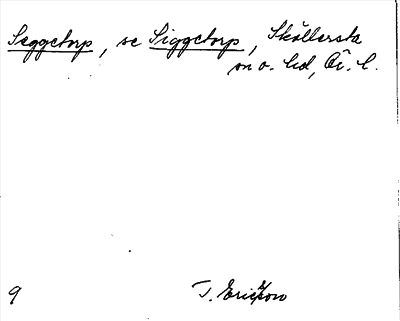 Seggetorp, se Siggetorp, Sköllersta
sn o. hd, Ör. l.
9 T. Ericsson